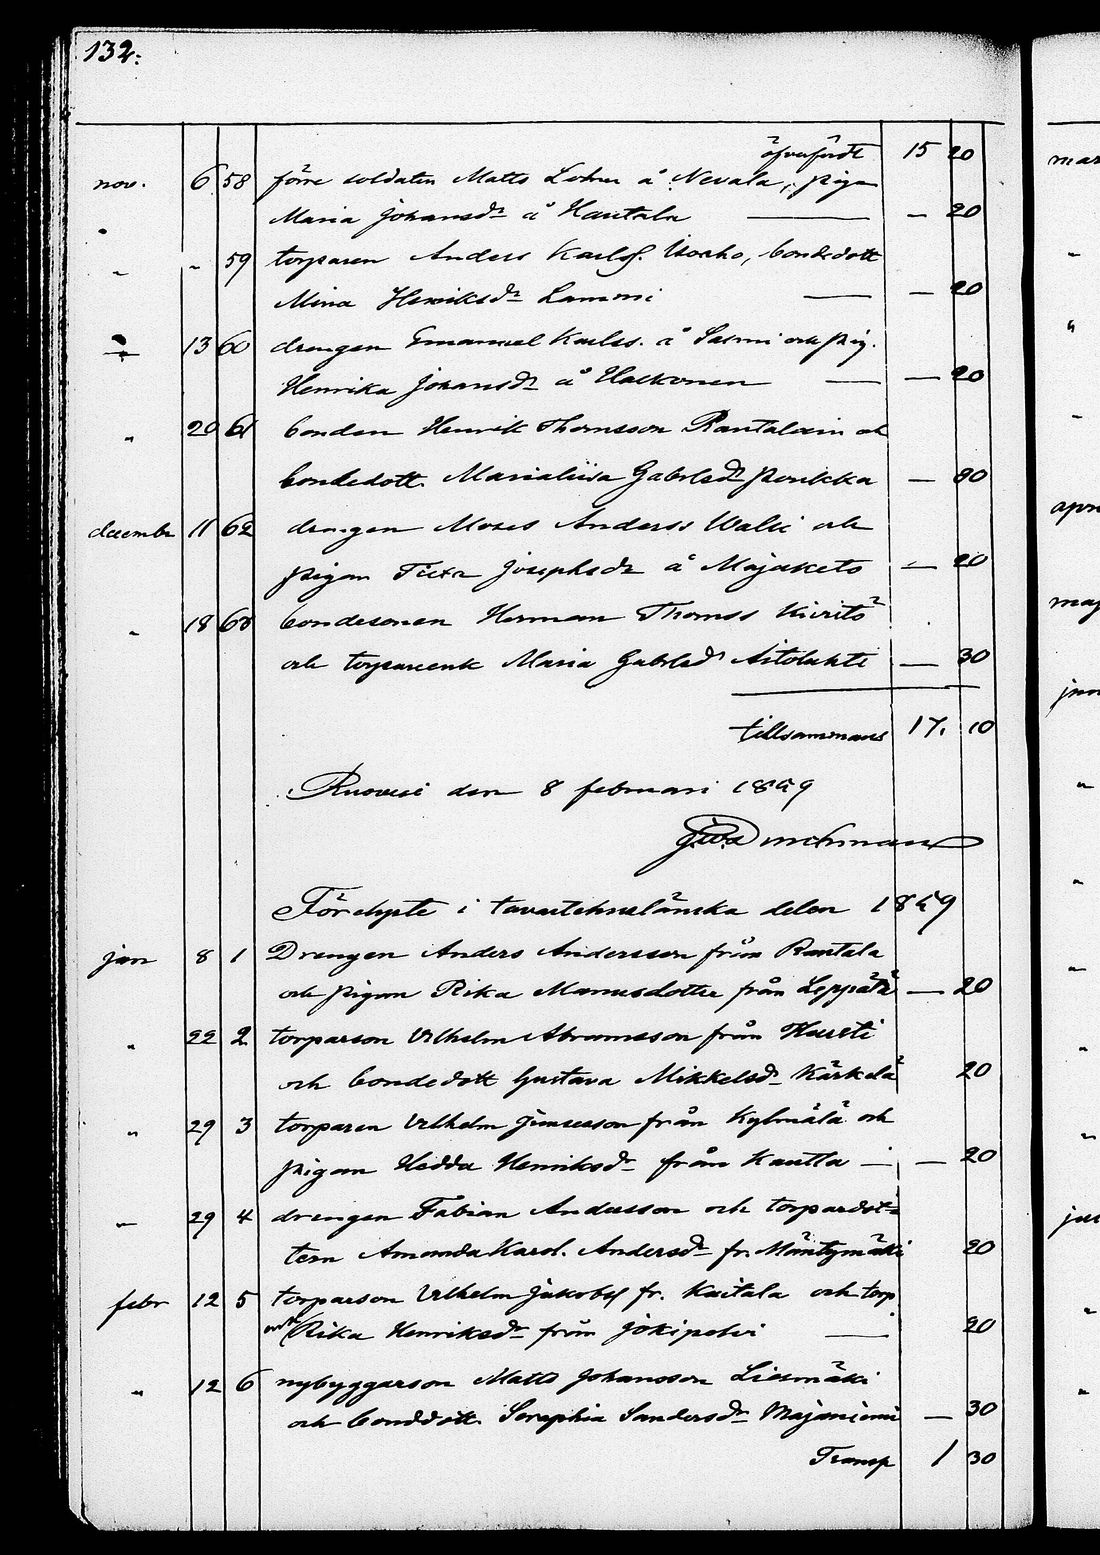 132:
öfverfördt 15 20
nov. 6 58 förre soldaten Matts å Nevala, pigan
Maria Johansdr å Hautala — — 20
„ „ 59 torparen Anders Karlss. Uoraho, bondedott
Mina Henriksdr Lammi — — 20
„ 13 60 drengen Emanuel Karlss. å Salmi och pig.
Henrika Johansdr å Hackonen — — 20
„ 20 61 bonden Henrik Thomsson Rantalain och
bondedott. Marialiisa Gabrlsdr Poukka — 80
decembr 11 62 drengen Moses Anderss Walli och
pigan Josephsdr å Majaketo — 20
„ 18 63 bondesonen Herman Thomss Kieritö
och torpareenk Maria Gabrlsdr Aitolahti — 30
tillsammans 17. 10
Ruovesi den 8 februari 1859
Förelyste i tavastehuslänska delen 1859
jan 8 1 Drengen Anders Andersson från Rantala
och pigan Rika Manusdotter från Leppälä — 20
„ 22 2 torparson Vilhelm Abramsson från Haveti
och bondedott Gustava Mikkelsdr Kärkelä 20
„ 29 3 torparen Vilhelm från Kylmälä och
pigan Hedda Henriksdr från Kautla — — 20
„ 29 4 drengen Fabian Andersson och torpardot-
tern Amanda Karol. Andersdr fr. Mäntymäki 20
febr 12 5 torparson Vilhelm Jakobss fr. Kaitala och torp
enk Rika Henriksdr från Jokipolvi — 20
„ 12 6 nybyggarson Matts Johansson Liesmäki
och bonddott. Seraphia Sandersdr Majaniemi — 30
Transp 1 30
mar
„
„
„
apri
maj
jun
„
„
„
„
„
„